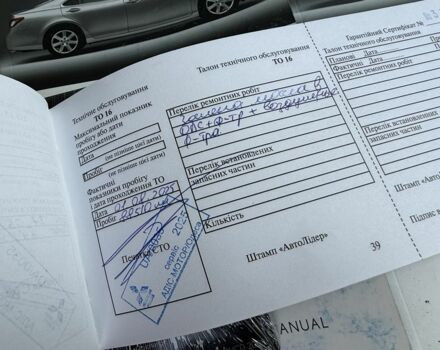 Технічне обслуговування
ТО 16
Максимальний показник
пробігу або дати
проходження
Дата
(не пізніше цієї дати)
Пробіг
(не пізніше цієї дати)
Фактичні
показники пробігу
і дата проходження ТО
Дата 01.08.2025
Пробіг
Печатка СТО
2025
сервіс
Талон технічного обслуговування
ТО 16
Перелік ремонтних робіт
замена масла в
ДВС + ф-тр + воздушный
ф-тра
Перелік встановлених
запасних частин
Кількість
Штамп «АвтоЛідер»
39
Гарантійний Сертифікат №
Талон технічного обслуговування
Планові
Дата
Фактичні
Дата
Перелік ремонтних робіт
Перелік встановлених
запасних частин
Штамп «АвтоЛі
Підпис
ANUAL